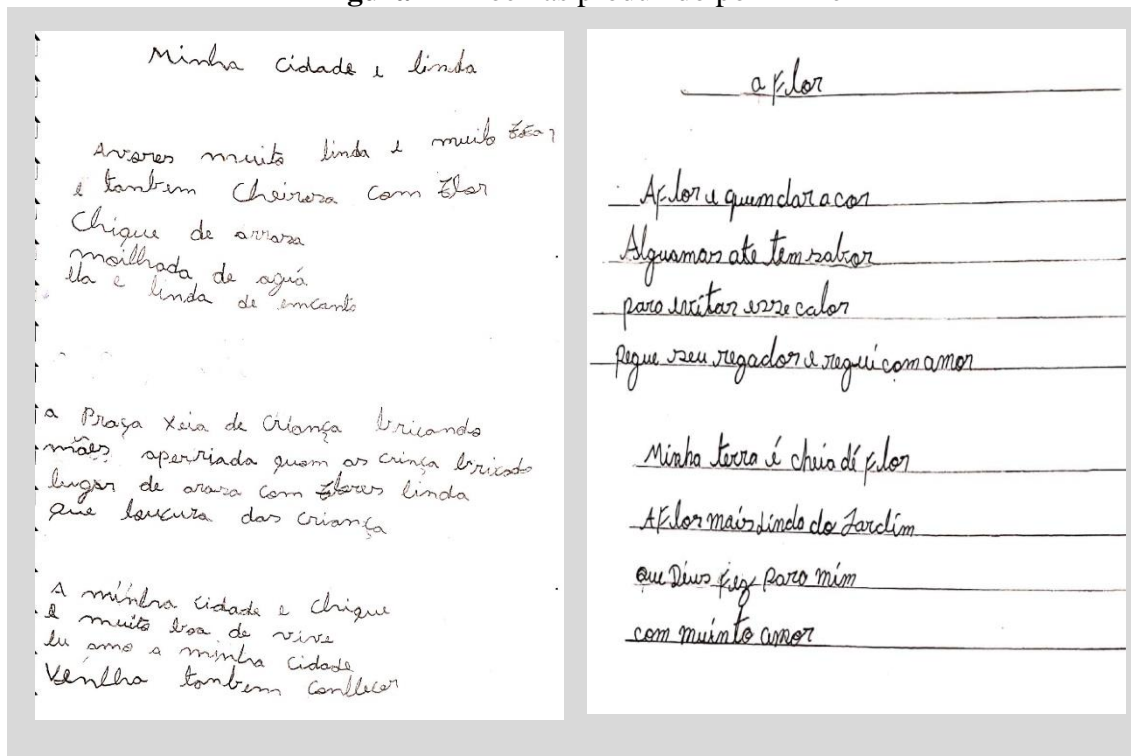 Minha cidade e linda
Avores muito linda e muito
e tanbem cheirosa com Flor
Chique de arrasa
moilhada de aguá
ela e linda de emcanto
a Praça xeia de Criança bricando
mães aperriada quam as crinça bricado
lugar de arasa com Flores linda
que loucura das criança
A minha cidade e chique
e muito boa de vive
Eu amo a minha cidade
Venlha tanbem conllecer
a Flor
A Flor e quem dar a cor
Alguamas ate tem sabor
para evitar esse calor
pegue seu regador e regui com amor
Minha terra é cheia dé Flor
A Flor mais linda do Jardim
que Déus fez para mim
com muinto amor